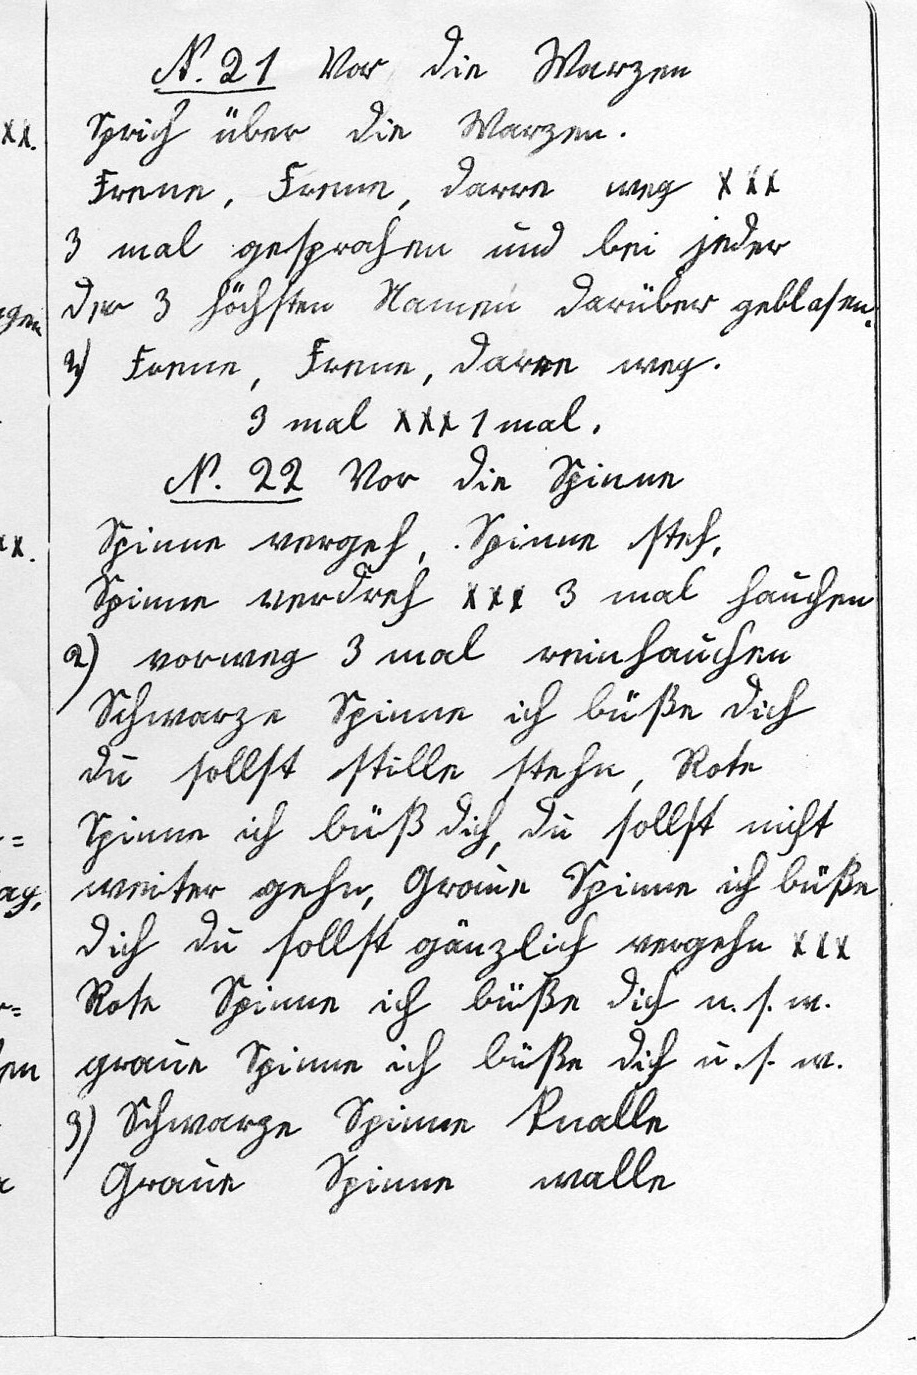 N. 21 Vor die Warzen
Sprich über die Warzen.
xx.
Frene, Frene, darre weg xxx
3 mal gesprochen und bei jeder
der 3 höchsten Namen darüber geblasen.
gen
2) Frene, Frene, darre weg.
3 mal xxx 1 mal.
N. 22 Vor die Spinne
Spinne vergeh, Spinne steh,
xx.
Spinne verdreh xxx 3 mal hauchen
2) vorweg 3 mal reinhauchen
Schwarze Spinne ich büße dich
du sollst stille stehn, Rote
Spinne ich büß dich, du sollst nicht
weiter gehn, Graue Spinne ich büße
dich du sollst gänzlich vergehn xxx
Rote Spinne ich büße dich u. s. w.
graue Spinne ich büße dich u. s. w.
3) Schwarze Spinne knalle
Graue Spinne walle